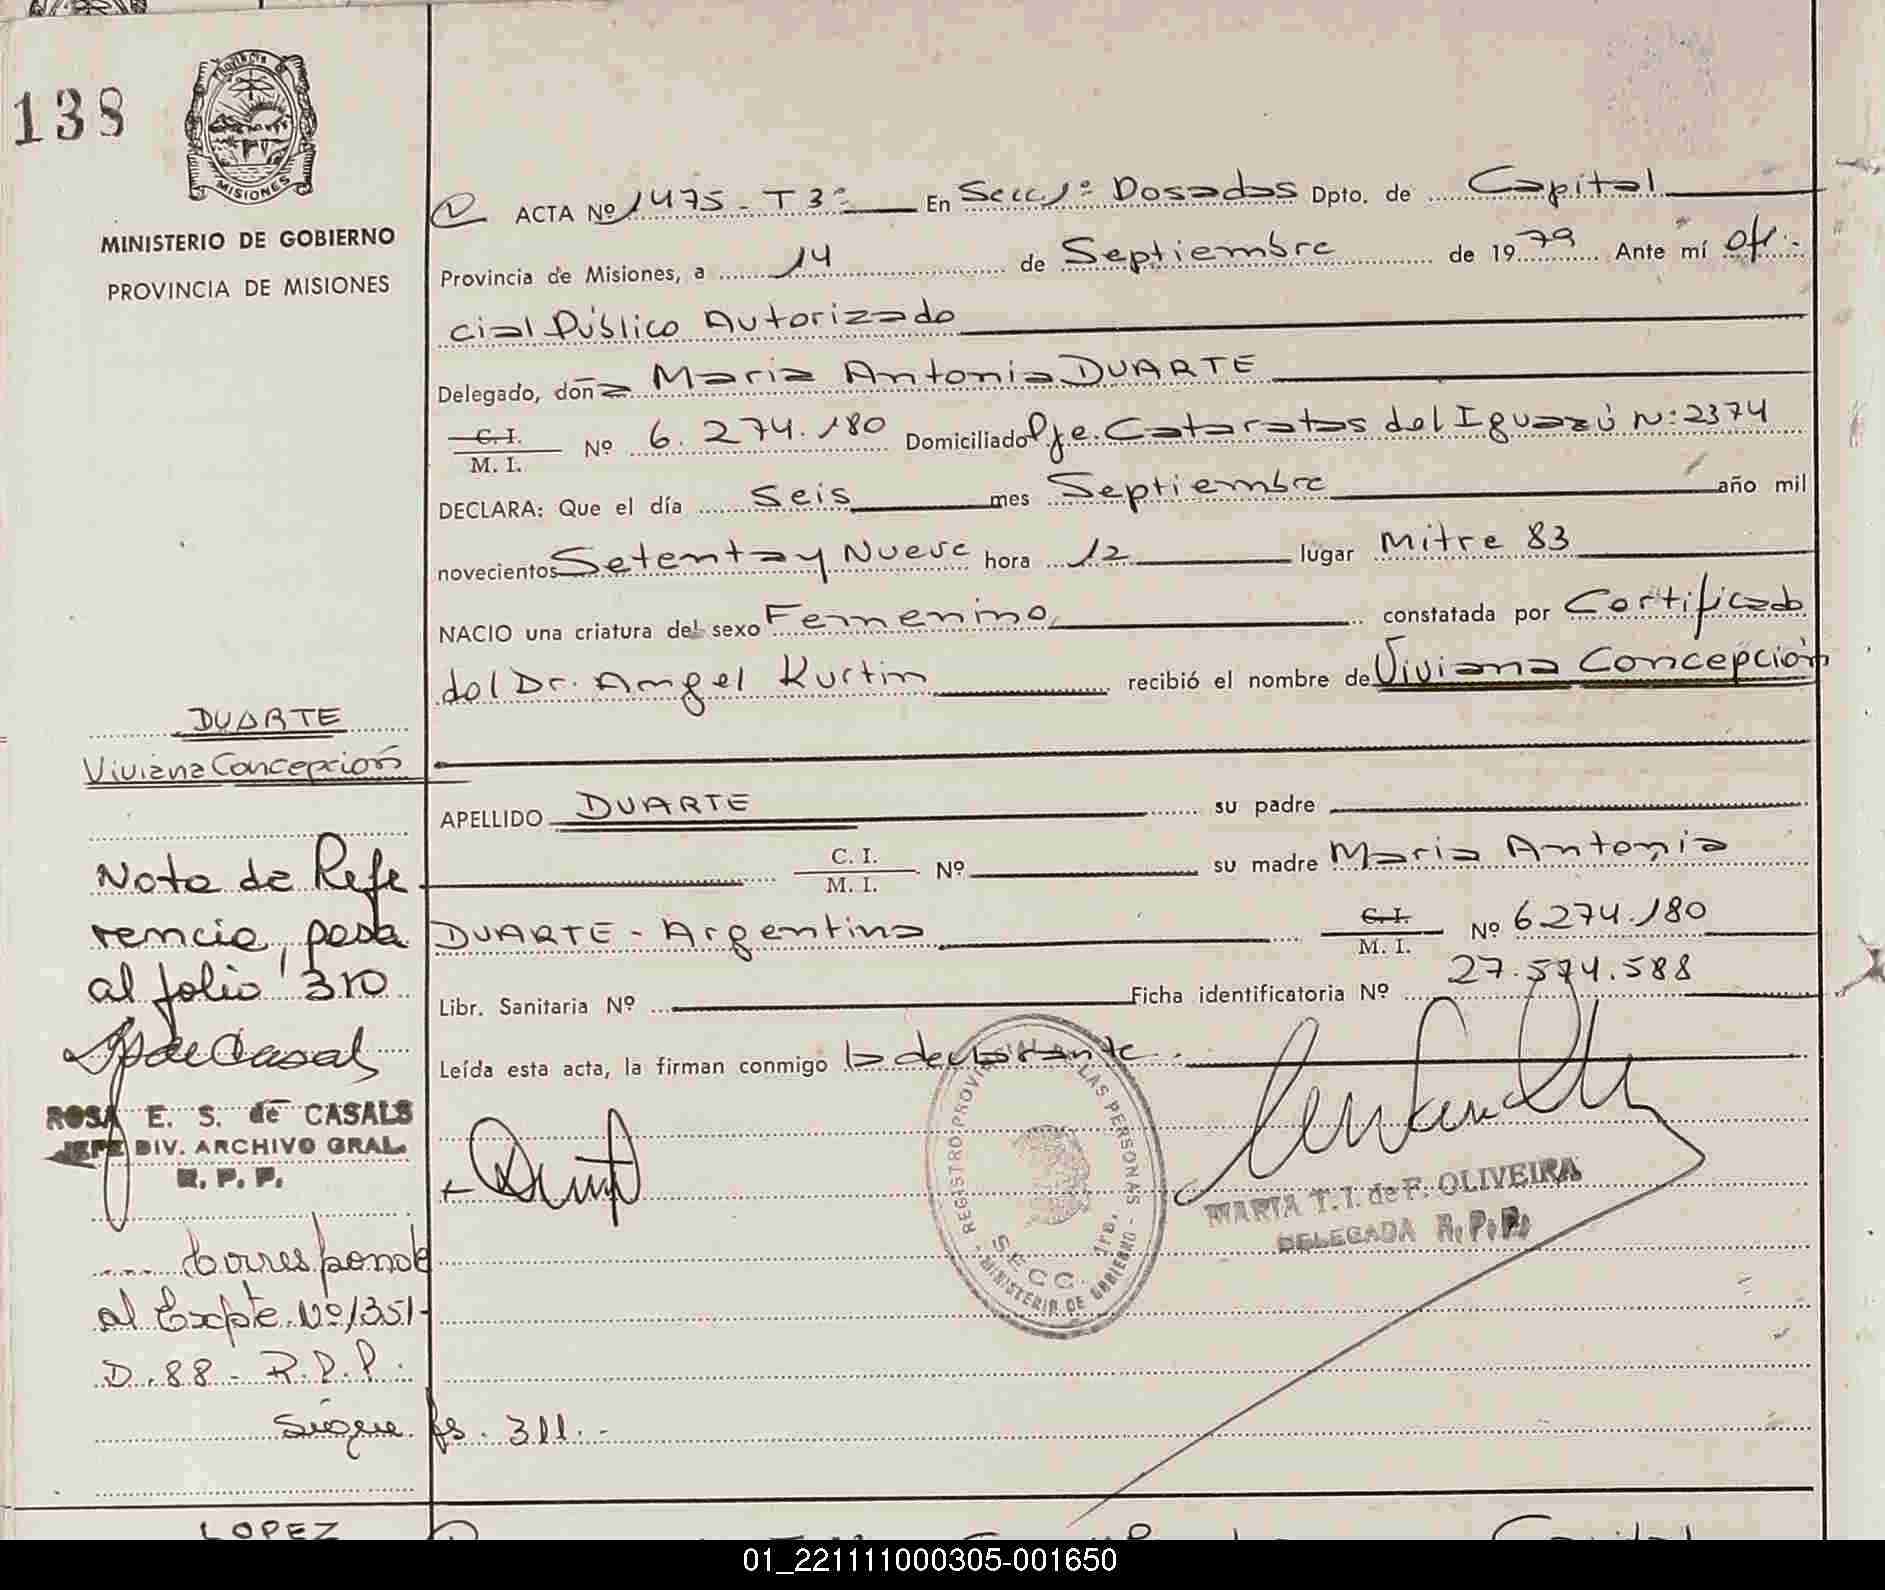 138
MISIONES
MINISTERIO DE GOBIERNO
PROVINCIA DE MISIONES
ACTA Nº 1475 - T 3º En Secc. 1º Posadas Dpto. de Capital
Provincia de Misiones, a 14 de Septiembre de 1979 Ante mí Ofi-
cial Público Autorizado
Delegado, doña Maria Antonia DUARTE
C. I.
M. I. Nº 6.274.180 Domiciliado Pje. Cataratas del Iguazú N: 2374
DECLARA: Que el día Seis mes Septiembre año mil
novecientos Setenta y Nueve hora 12 lugar Mitre 83
NACIO una criatura del sexo Femenino constatada por Certificado
del Dr. Angel Kurtin recibió el nombre de Viviana Concepción
DUARTE
Viviana Concepción
APELLIDO DUARTE su padre
C. I.
M. I. Nº su madre Maria Antonia
DUARTE - Argentina C. I.
M. I. Nº 6.274.180
Libr. Sanitaria Nº Ficha identificatoria Nº 27.574.588
Leída esta acta, la firman conmigo la declarante.
Nota de Refe
rencia, pasa
al folio 310
ROSA E. S. de CASALS
JEFE DIV. ARCHIVO GRAL.
R. P. P.
REGISTRO PROVINCIAL DE LAS PERSONAS
SECC. 1ra.
MINISTERIO DE GOBIERNO
MARIA T. I. de F. OLIVEIRA
DELEGADA R. P. P.
Corresponde
al Expte. Nº 1351-
D. 88 - R.P.P.
Sigue fs. 311.-
LOPEZ
01_221111000305-001650